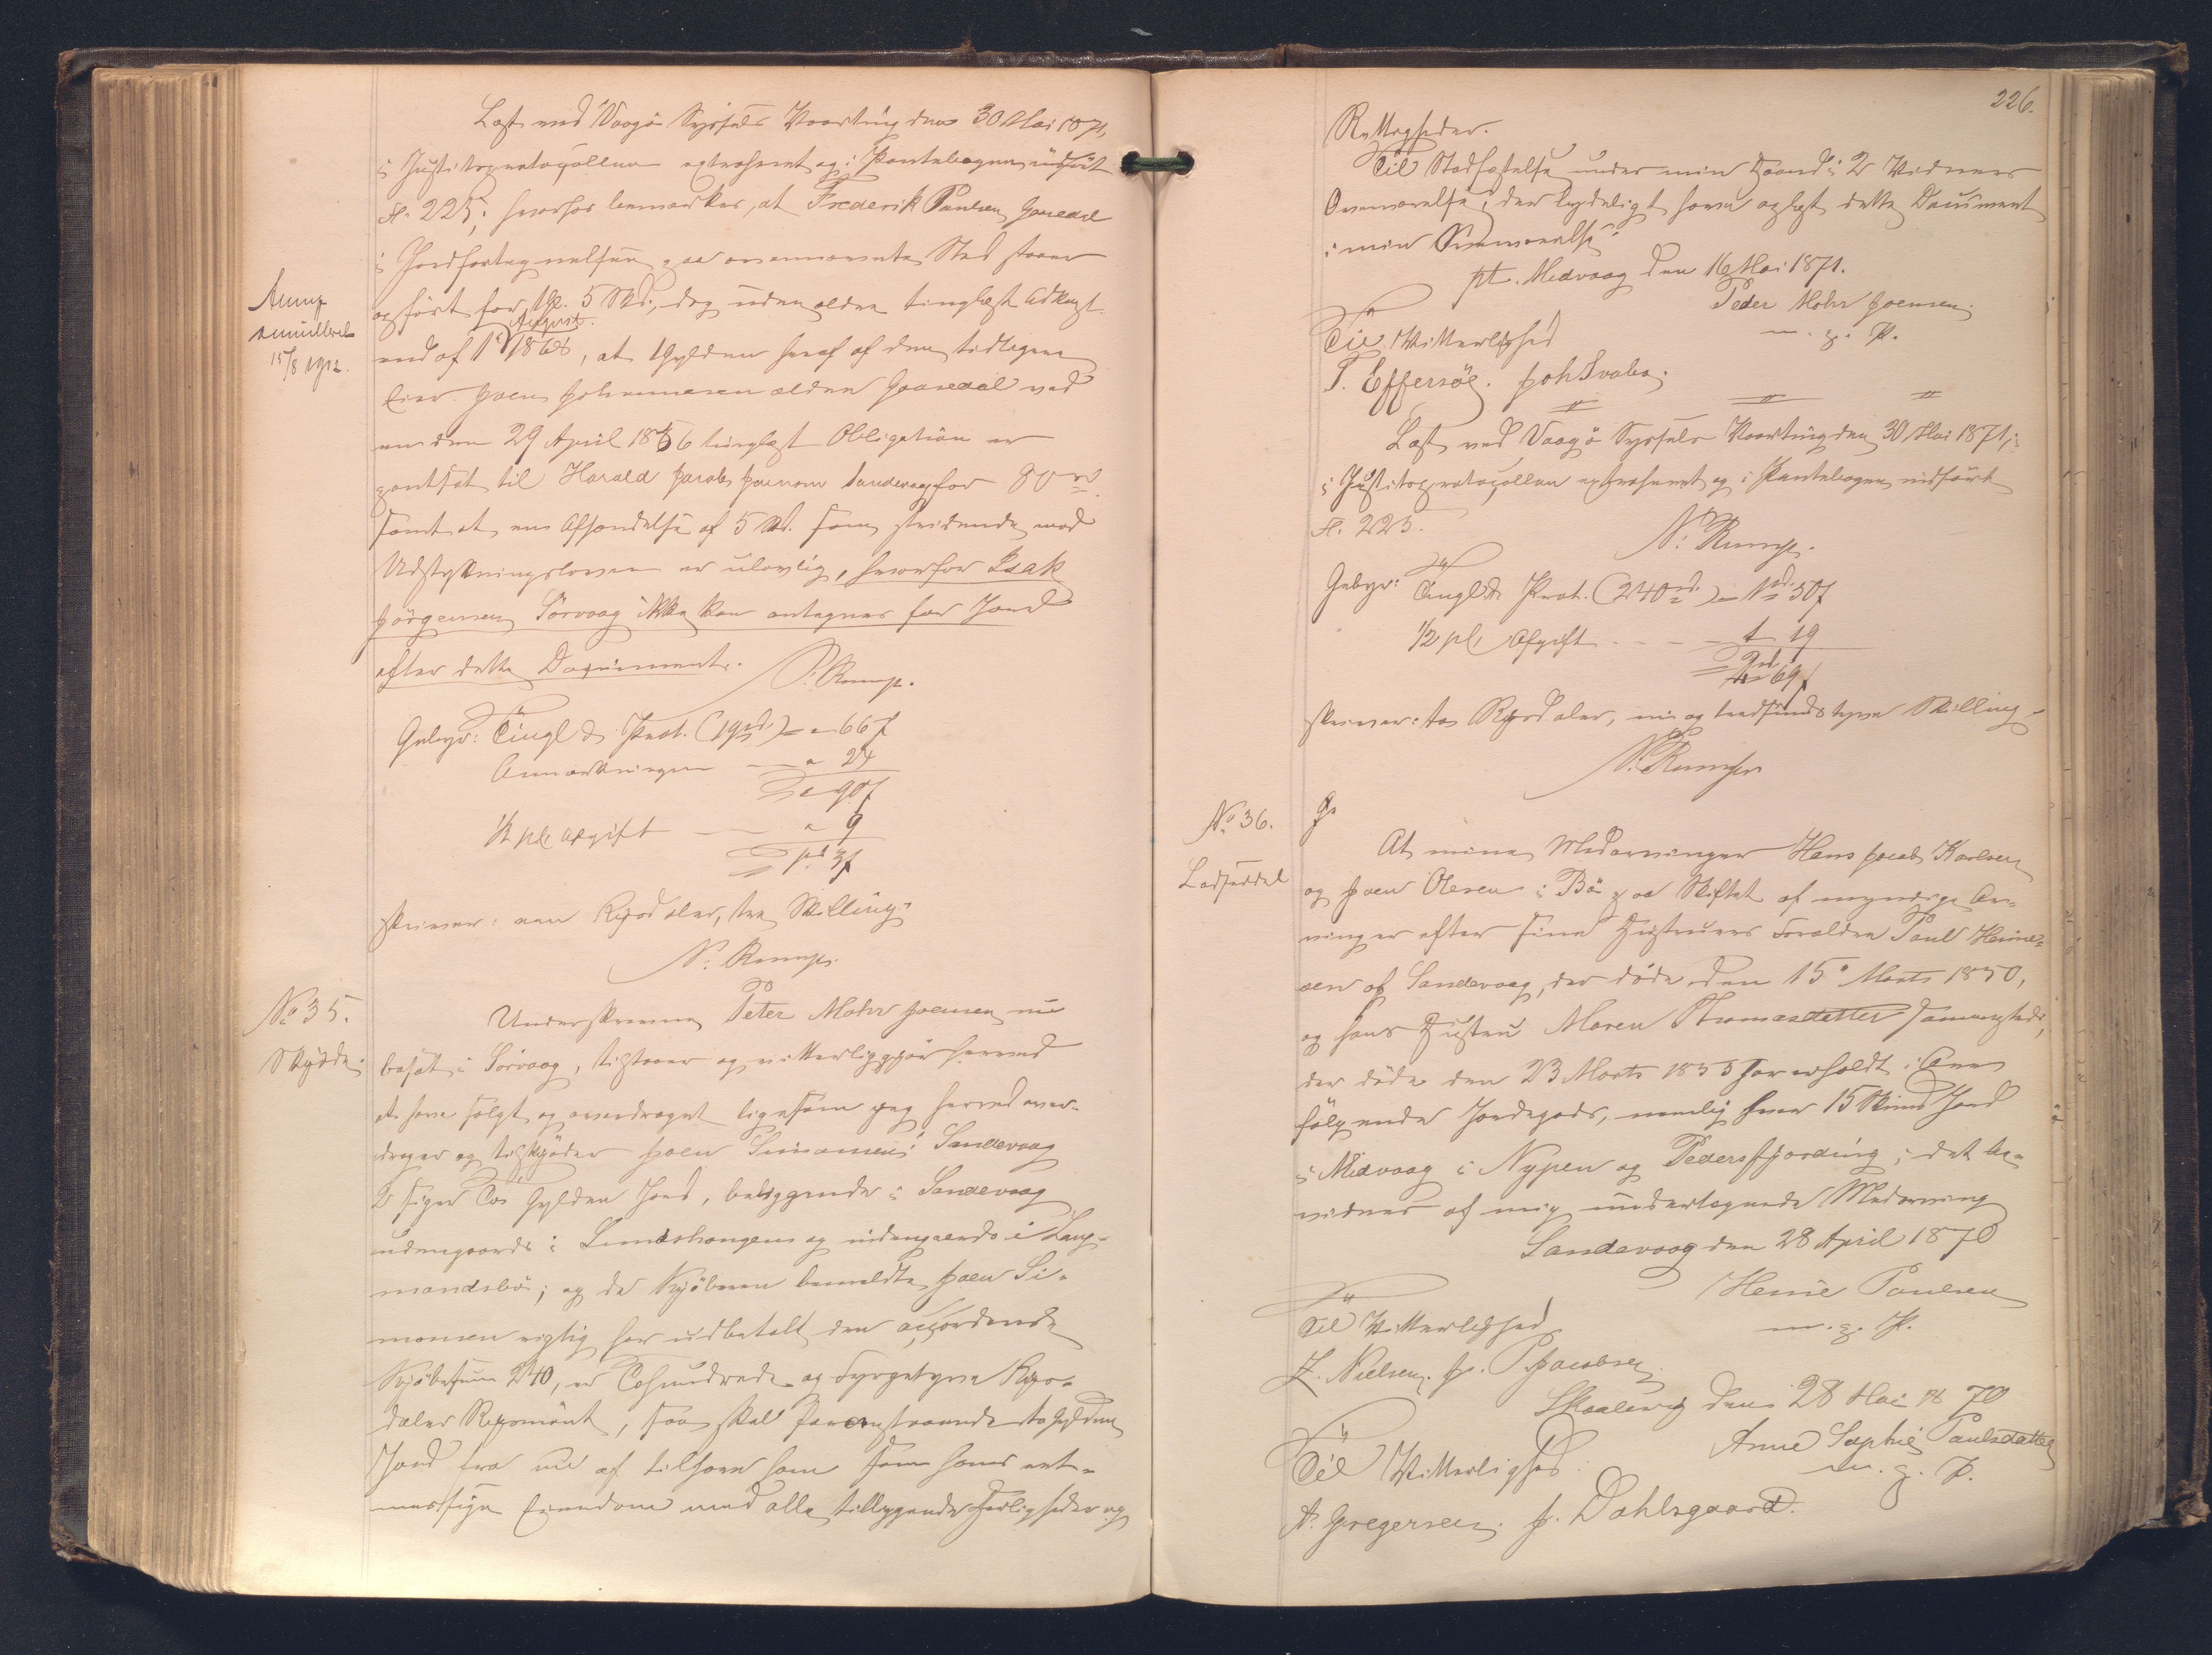 Læst ved Vaagø Syssels Vaarting den 30 Mai 1871,
i Justitsprotocollen extraheret og i Pantebogen indført
Fl. 225; hvorhos bemærkes, at Frederik Paulsen Gaasedal
i Jordfortegnelsen paa ovennævnte Sted staaer
opført for Gl. 5 Skd., dog uden ældre tinglæst Adkomst
end af 1 August 1868, at Gylden heraf af den tidligere
Eier Joen Johannesen ældre Gaasedal ved
en den 29 April 1856 tinglæst Obligation er
pantsat til Harald Jacob Joensen Sandevaag for 80 rd.
samt at en Afhændelse af 5 Skd. som stridende mod
Udstykningsloven er ulovlig, hvorfor Isak
Jörgensen Sörvaag ikke kan antegnes for Jord
efter dette Document.
N. Rump.
Gebyr: Tingl. & Prot. (19 rd.) = " 66 ſ
Anmærkningen — " 24
" 90 ſ
½ pCt Afgift — " 9
1 rd 3 ſ
skriver: een Rigsdaler, tre Skilling.
N. Rump.
Anmp
annulleret
15/8 1912.
No 35.
Skjøde.
Underskrevne Peter Mohr Joensen nu
bosat i Sörvaag, tilstaaer og vitterliggjør herved
at have solgt og overdraget ligesom jeg herved over-
drager og tilskjøder Joen Simonsen i Sandevaag
2 siger To Gylden Jord, beliggende i Sandevaag
udengaards i Lundshangen og indengaards i Lang-
mandsbö; og da Kjøberen bemeldte Joen Si-
monsen rigtig har udbetalt den accorderede
Kjøbesum 240, er Tohundrede og Fyrgetyve Rigs-
daler Rigsmönt, saa skal foranstaaende to Gylden
Jord fra nu af tilhøre ham som hans ret-
mæssige Eiendom med alle tilliggende Herligheder og
226.
Rettigheder.
Til Stadfæstelse under min Haand i 2 Vidners
Overværelse, der tydeligt have oplæst dette Document
i min Overværelse.
pt. Midvaag den 16 Mai 1871.
Peder Mohr Joensen
m. p. P.
Til Vitterlighed
P. Effersöe. Joh Svabo.
Læst ved Vaagö Syssels Vaarting den 30 Mai 1871;
i Justitsprotocollen extraheret og i Pantebogen indført
Fl. 225.
N. Rump.
Gebyr: Tingl. & Prot. (240 rd.) = 1 rd. 50 ſ
½ pCt Afgift - - - 1 " 19
2 rd 69 ſ
skriver: to Rigsdaler, ni og tredsindstyve Skilling
N. Rump
No 36.
Lodseddel
At mine Medarvinger Hans Jacob Karlsen
og Joen Olesen i Bö paa Skiftet af myndige Ar-
vinger efter sine Hustruers Forældre Paul Heine-
sen af Sandevaag, der døde den 15 Marts 1850,
og hans Hustru Maren Thomasdatter sammesteds,
der døde den 23 Marts 1853 har erholdt i Arv
følgende Jordegods, nemlig hver 15 Skind Jord
i Midvaag i Nypen og Pedersfjording; det be-
vidnes af mig undertegnede Medarving
Sandevaag den 28 April 1870
Heine Paulsen
m. p. P.
Til Vitterlighed
Z. Nielsen. J. P. Jacobsen.
Skaalevig den 28 Mai 1870
Anne Sophie Paulsdatter
m. p. P.
Til Vitterlighed
A. Gregersen. J. Dahlsgaard.